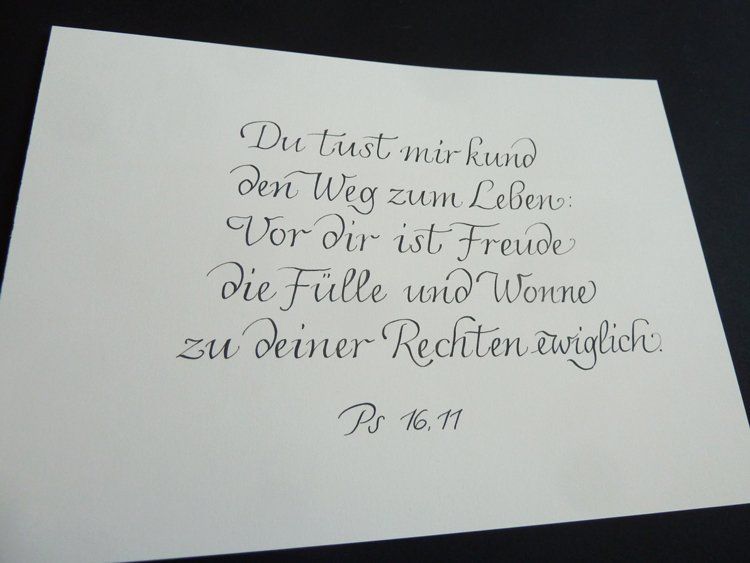 Du tust mir kund
den Weg zum Leben:
Vor dir ist Freude
die Fülle und Wonne
zu deiner Rechten ewiglich.
Ps 16,11